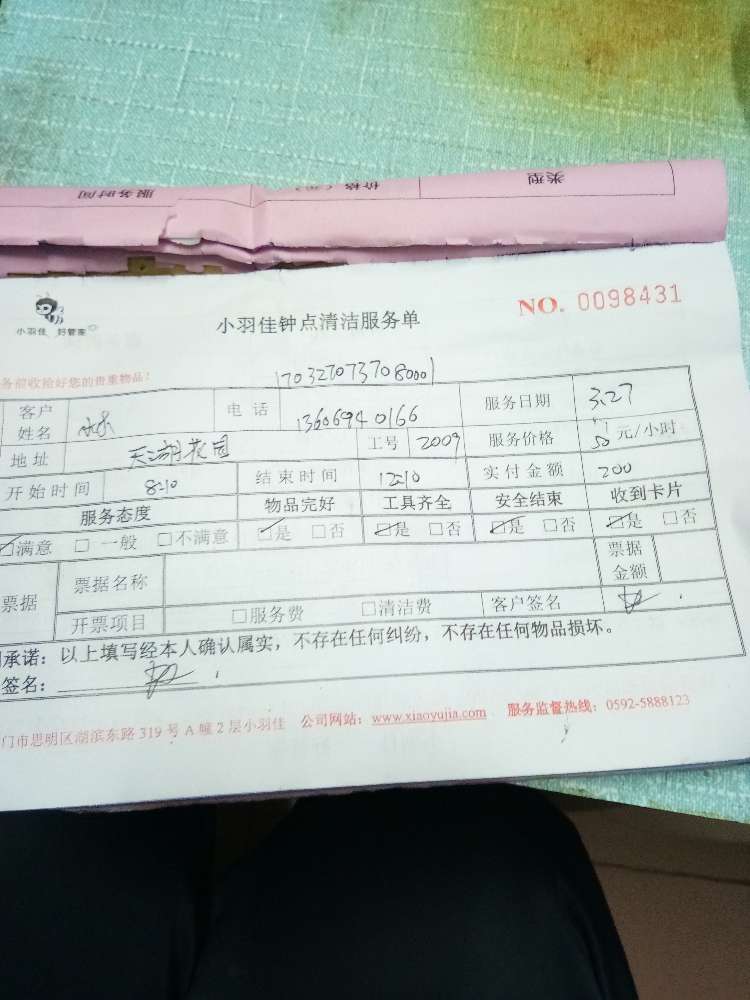 类型 价格（元） 服务时间
小羽佳 好管家
小羽佳钟点清洁服务单
NO. 0098431
务前收拾好您的贵重物品！
1703270737080001
客户姓名 电话 13606940166 服务日期 3.27
地址 天湖花园 工号 2009 服务价格 50元/小时
开始时间 8:10 结束时间 12:10 实付金额 200
服务态度 物品完好 工具齐全 安全结束 收到卡片
☑满意 □一般 □不满意 ☑是 □否 ☑是 □否 ☑是 □否 ☑是 □否
票据 票据名称 票据金额
开票项目 □服务费 □清洁费 客户签名
承诺：以上填写经本人确认属实，不存在任何纠纷，不存在任何物品损坏。
签名：
门市思明区湖滨东路319号A幢2层小羽佳 公司网站：www.xiaoyujia.com 服务监督热线：0592-5888123